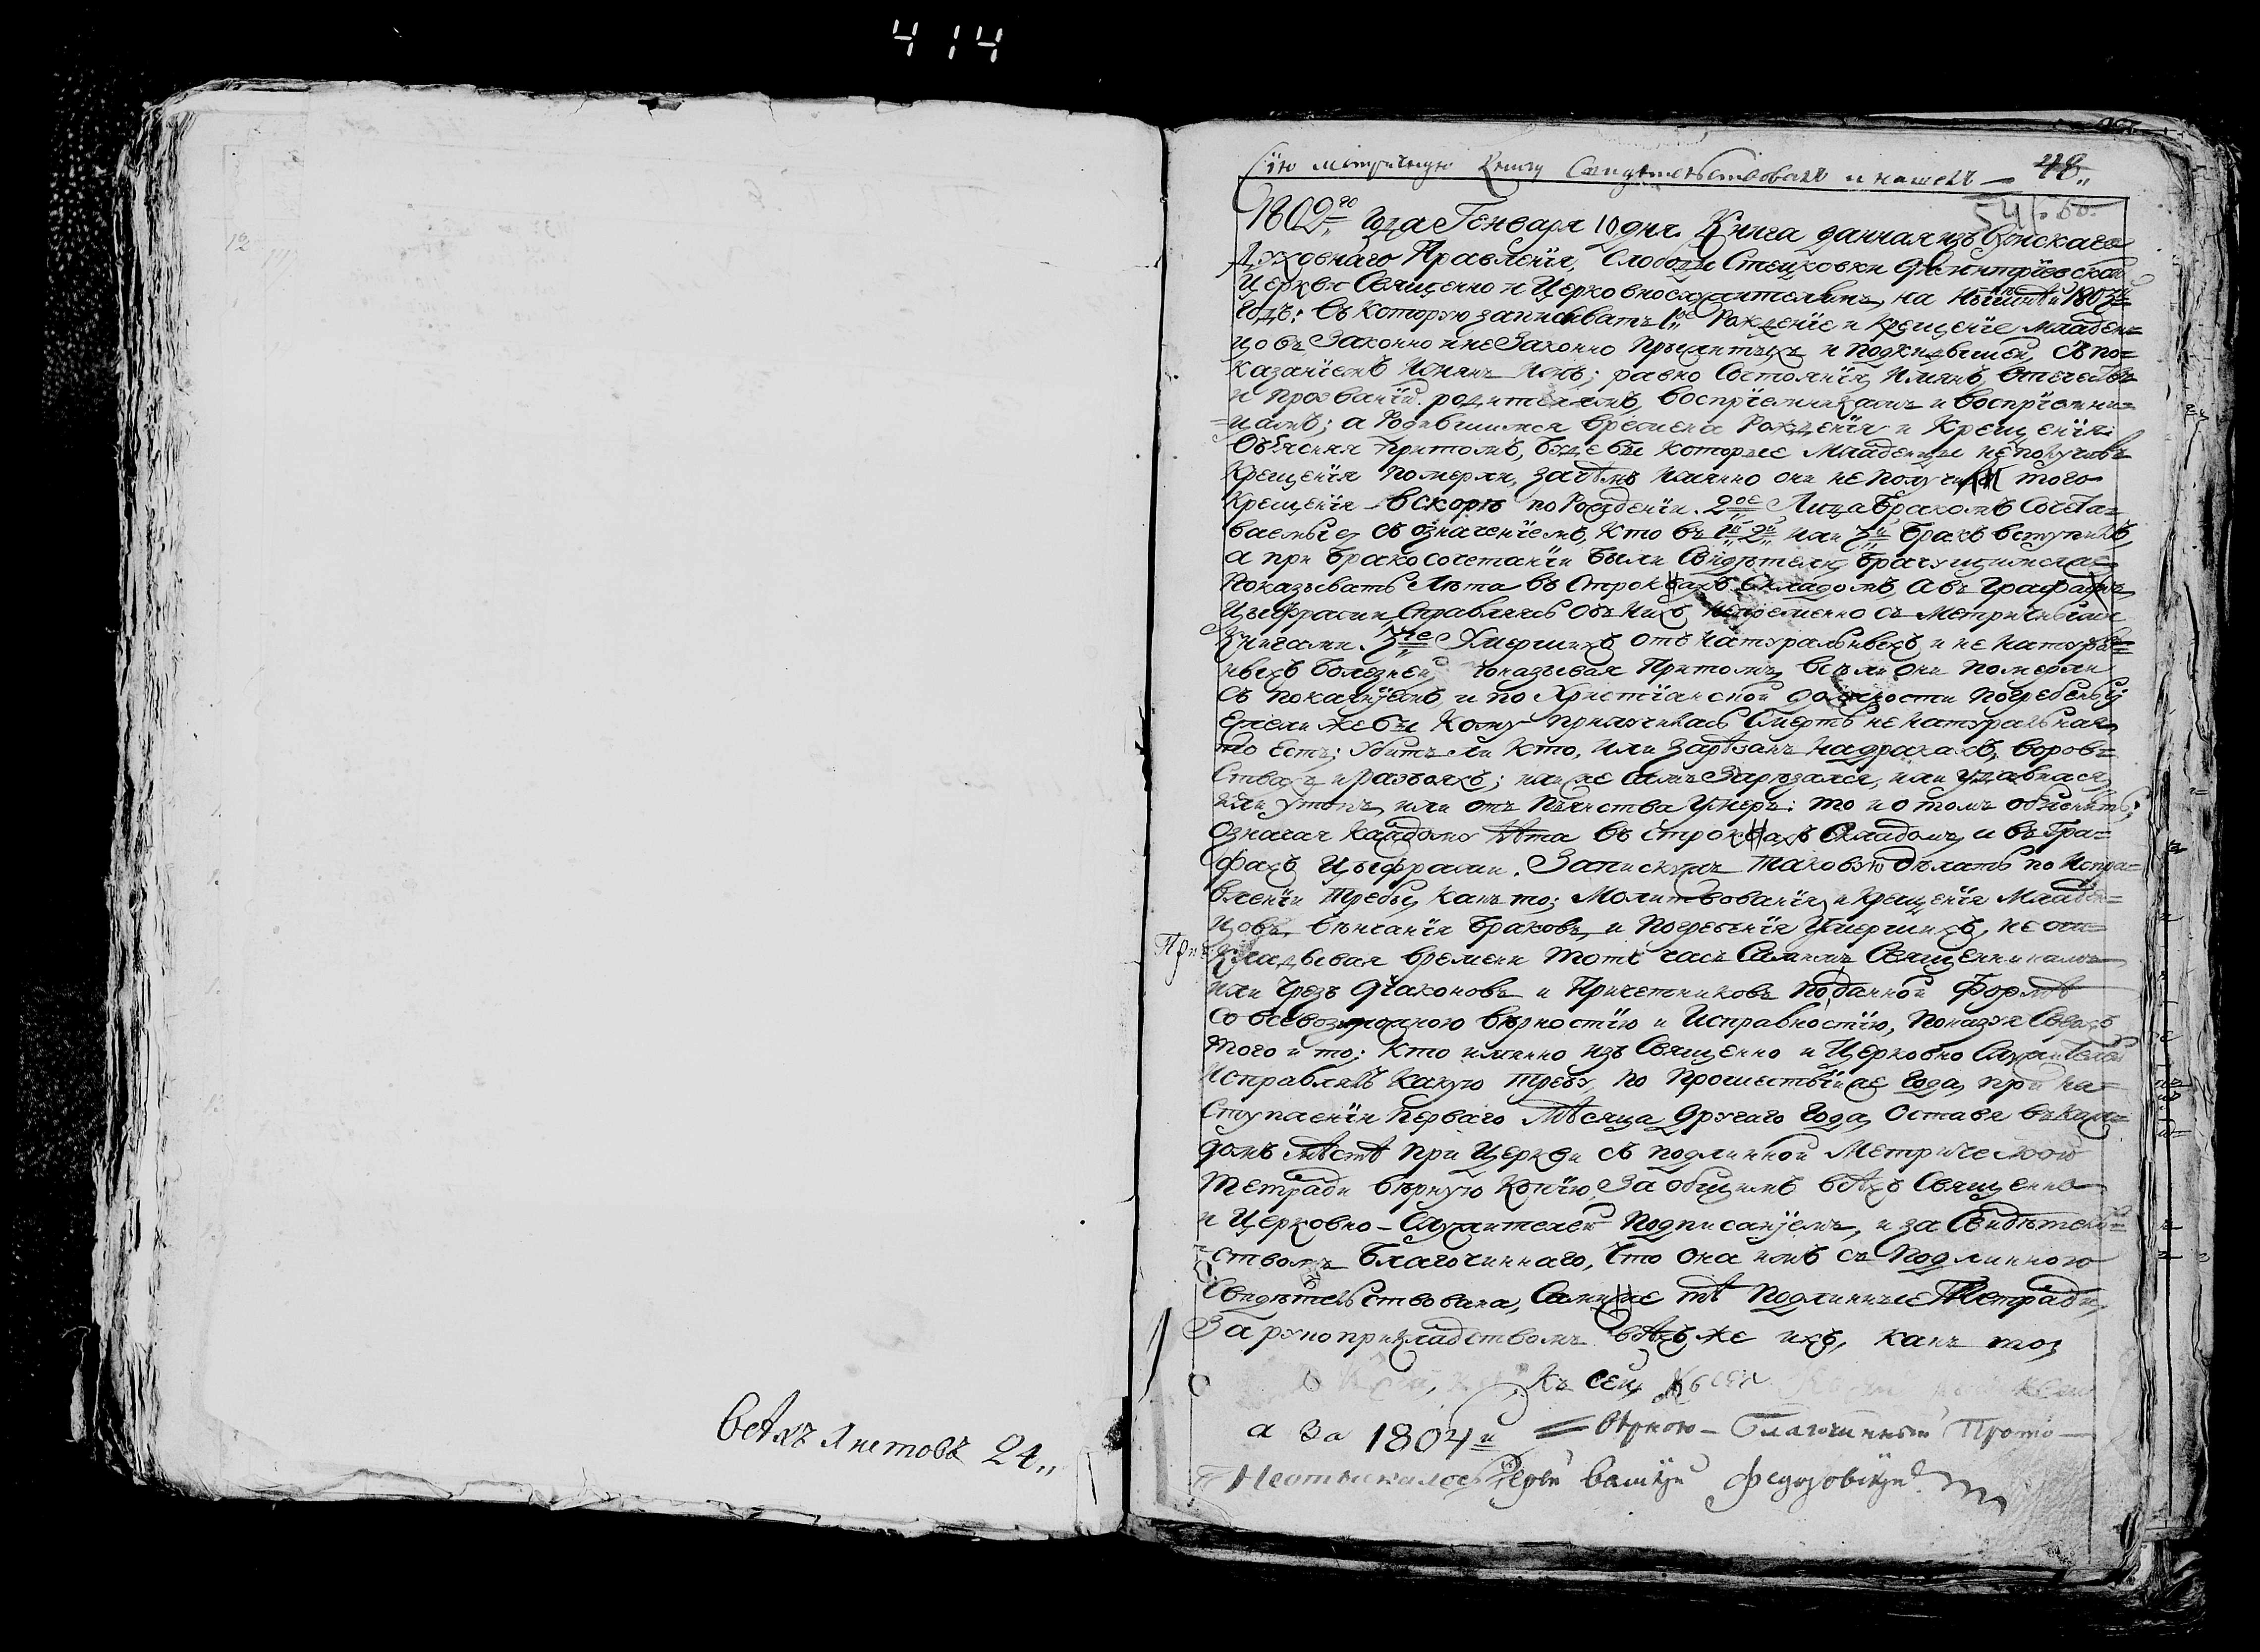 414
Всѣхъ листовъ 24„
Сїю метрическую Книгу Свидѣтельствовалъ и нашелъ —
48„
54
1802го года Генваря 10 дня. Книга данная изъ
Духовнаго Правленїя, Слободы Стецковки Димитрїевской
Церкви Священно и Церковнослужителямъ, на 1803й
годъ: въ которую записывать 1е Рожденїе и Крещенїе младен=
цовъ Законно и не Законно прыжитыхъ и подкидышей, съ по=
казанїемъ Имянъ ихъ; равно Состоянїя, Имянъ, отечествъ
и прозванїй родителямъ, воспрїемникамъ и воспрїемни=
=цамъ; а Родившимся времена Рожденїя и Крещенїя:
Объясняя притомъ, буде бы которые Младенцы не получивъ
Крещенїя померли, зачѣмъ имянно они не получили того
Крещенїя вскорѣ по Рожденїи. 2ое Лица бракомъ Сочета=
ваемые, съ означенїемъ, Кто въ 1й 2й или 3й бракъ вступилъ,
а при бракосочетанїи были Свидѣтели, брачущимся
Показывать Лѣта въ строкахъ Складомъ, а въ Графахъ
Цыфрами, Справляясь объ нихъ непременно съ метричными
Книгами. 3тее Умершихъ отъ натуральныхъ и не натураль=
ныхъ болезней, показывая притомъ, всѣ ли они померли
съ покаянїемъ, и по Христїанской должности погребены,
Ежели же бы Кому приключилась Смерть не натуральная,
то есть: убитъ ли кто, или зарѣзанъ на дракахъ, воров=
ствахъ и разбояхъ; или же самъ Зарѣзался, или удавился,
или утопъ, или отъ пьянства умеръ: то и о томъ объяснить;
Означая Каждому лѣта въ строкахъ Складомъ, и въ Гра=
фахъ Цыфрами. Записку же таковую дѣлать по Испра=
вленїи требы, какъ то; Молитвованїя, и Крещенїя Младен=
цовъ, вѣнчанїи браковъ, и Погребенїя Умершихъ, не от=
кладывая времени тотъ часъ Самимъ Священникамъ
или чрезъ Дїаконовъ и Причетниковъ по данной формѣ
со всевозможною вѣрностїю и Исправностїю, показуя Сверхъ
того и то; кто имянно изъ Священно и Церковно Служителей
Исправлялъ какую требу, по прошествїи же года, при на=
ступленїи перваго Мѣсяца Другаго Года, оставя въ каж=
домъ мѣстѣ при Церкви съ подлинной Метрической
тетради вѣрную Копїю, За общимъ всѣхъ Священно
и Церковно-Служителей Подписанїемъ, и за Свидѣтель=
=ствомъ Благочиннаго, что она имъ съ Подлинною
Свидѣтельствована, Самые же тѣ Подлинные Тетради,
За рукоприкладствомъ всѣхъ же ихъ, какъ то,
къ сей
а За 1804й = Вѣрною — Благочинный Прото-
Неотыскалось Іерей Василїй Федоровскїй